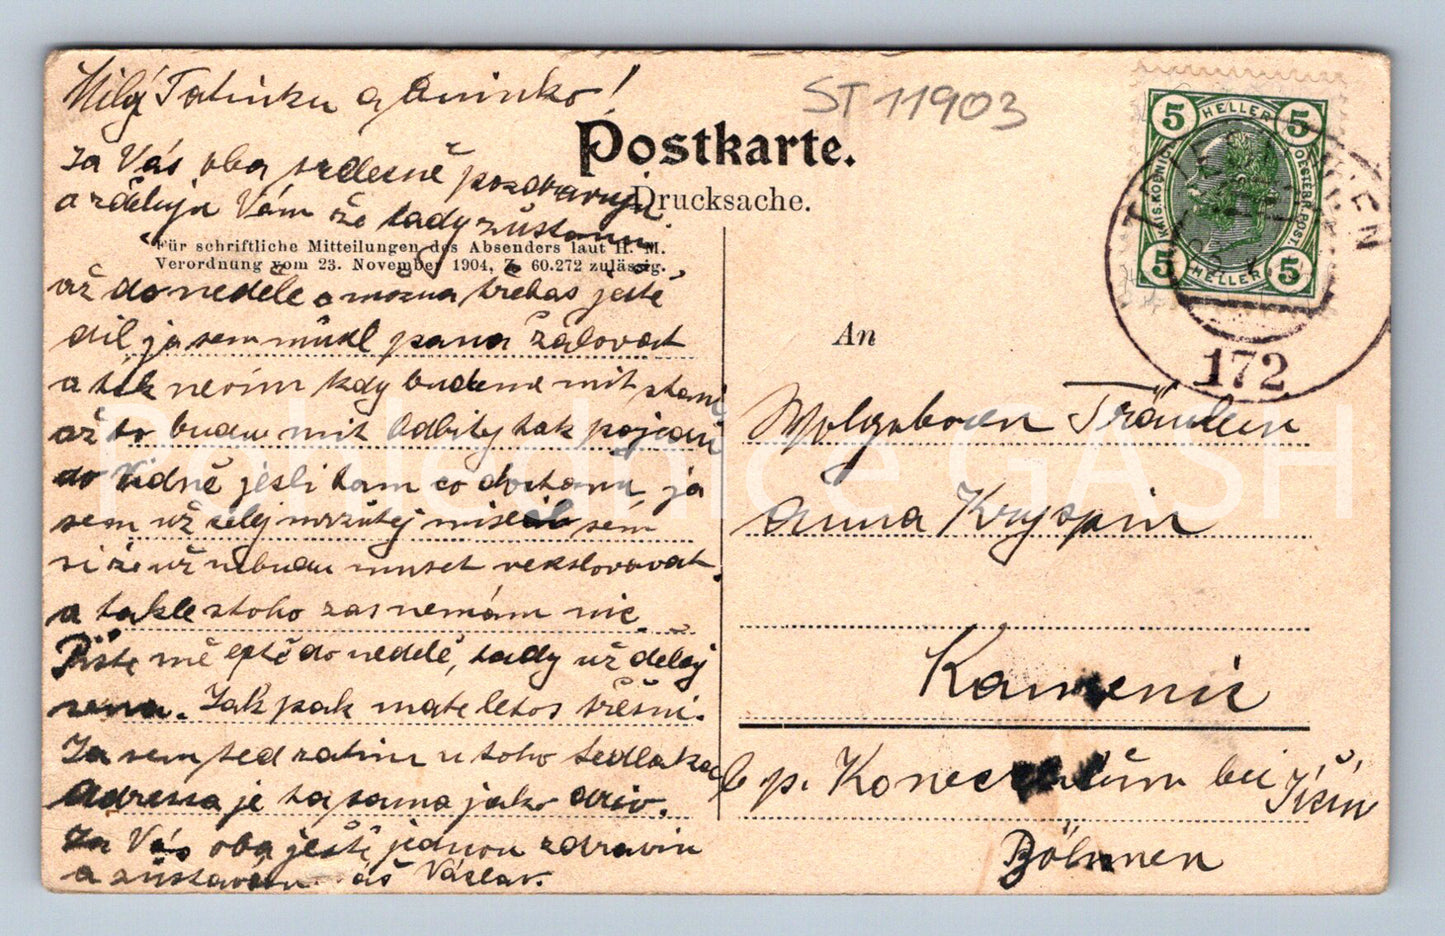 Milý Tatínku a Aninko!
Já Vás oba srdečně pozdravuji
a zděluju Vám že tady zůstanu
až do neděle a možna třebas ještě
dil já sem můsel pana žalovat
a tak nevím kdy budeme mit stani
až to budu mit Odbity tak pojedu
do Vidně jesli tam co dostanu, ja
sem už celej mrzutej mislil sem
si že už nebudu muset vekslovovat.
a takle z toho zas nemám nic.
Pište mě eště do neděle, tady už dělaj
sena. Jak pak mate letos třešni.
Ja sem ted zatim u toho sedlaka
Adressa je ta sama jako driv.
Ja Vás oba ještě jednou zdravim
a zůstavám váš Václav.
ST 11903
Postkarte.
Drucksache.
Für schriftliche Mitteilungen des Absenders laut H. M.
Verordnung vom 23. November 1904, Z. 60.272 zulässig.
5 HELLER 5
KAIS. KÖNIGL. OESTERR. POST.
5 HELLER 5
WIEN
172
An
Wolgeboren Fräulen
Anna Kryspin
Kamenic
b p. Konec bei Jičín
Böhmen
Pohlednice GASH